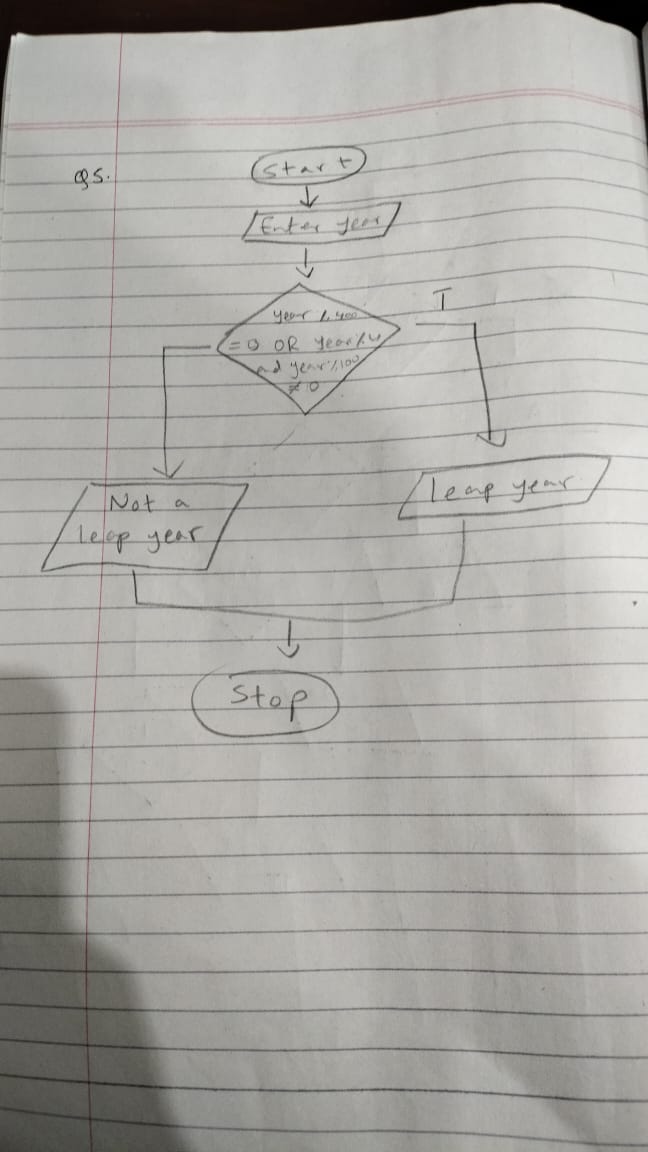 Q5.
Start
Enter year
year % 400
= 0 OR year % 4
and year % 100
≠ 0
T
Not a
leap year
leap year
Stop